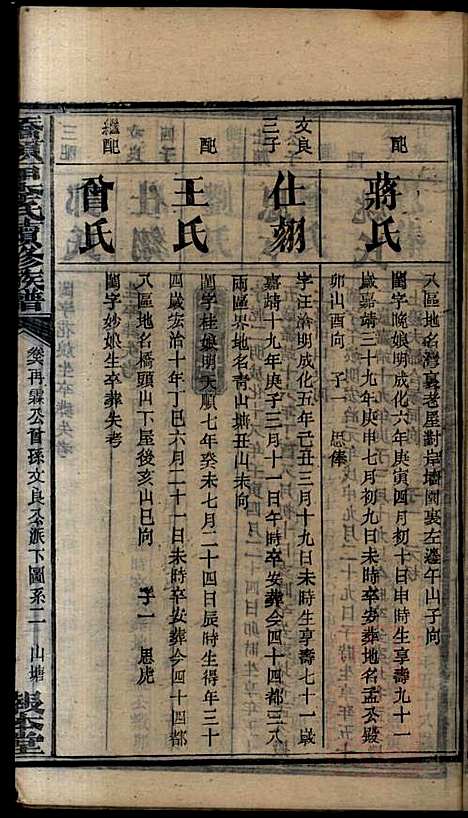 八區地名灣裏老屋對岸墻圍裏左邊午山子向
配
蔣氏
閨字晚娘明成化六年庚寅四月初十日申時生享壽九十一
歲嘉靖三十九年庚申七月初九日未時卒安葬地名孟公殿
卯山酉向 子一 思俸
文良
三子
仕翱
字汪洽明成化五年己丑三月十九日未時生享壽七十一歲
嘉靖十九年庚子三月十一日午時卒安葬今四十四都三八
兩區界地名青山塘丑山未向
配
王氏
閨字桂娘明天順七年癸未七月二十四日辰時生得年三十
四歲宏治十年丁巳六月二十一日未時卒安葬今四十四都
八區地名橋頭山下屋後亥山巳向 子一 思虎
繼配
曾氏
閨字妙娘生卒葬失考
氏續修族譜
再霖公曾孫文良公派下圖系二 山塘
敬本堂